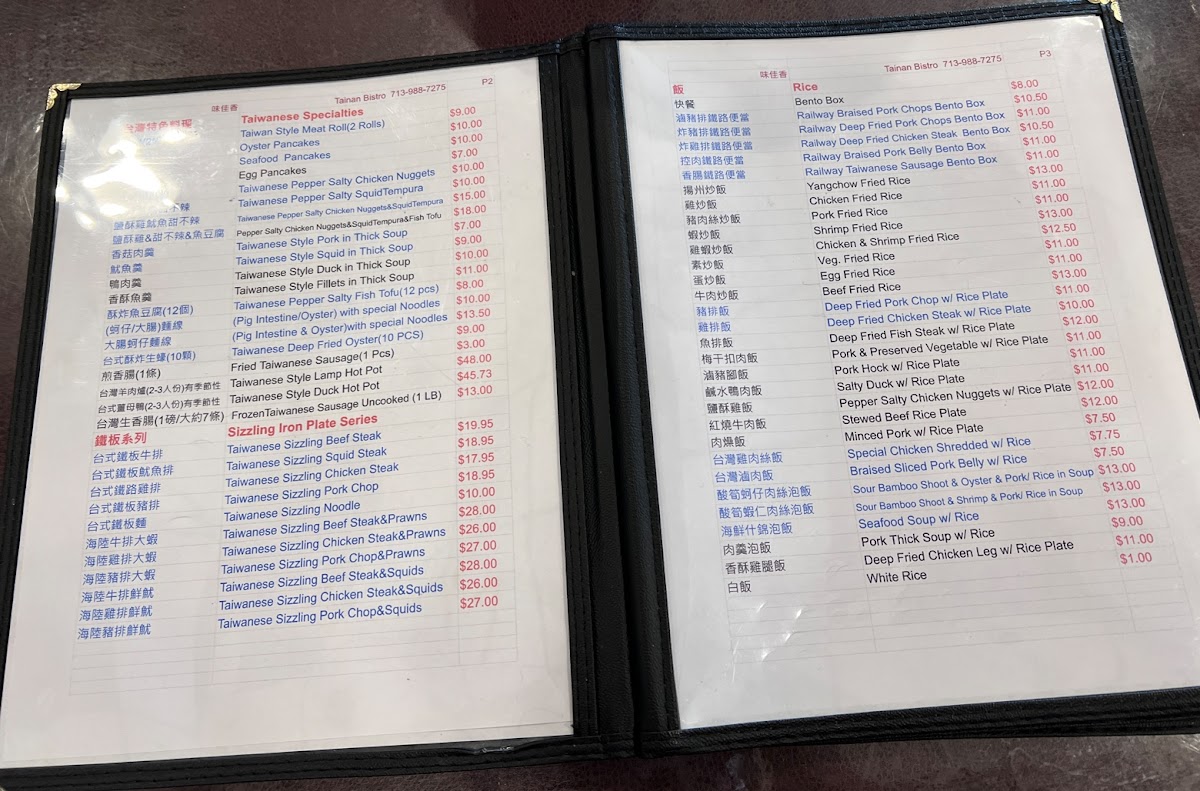 味佳香 Tainan Bistro 713-988-7275 P2
Taiwanese Specialties
Taiwan Style Meat Roll(2 Rolls) $9.00
Oyster Pancakes $10.00
Seafood Pancakes $10.00
Egg Pancakes $7.00
Taiwanese Pepper Salty Chicken Nuggets $10.00
不辣 Taiwanese Pepper Salty SquidTempura $10.00
鹽酥雞魷魚甜不辣 Taiwanese Pepper Salty Chicken Nuggets&SquidTempura $15.00
鹽酥雞&甜不辣&魚豆腐 Pepper Salty Chicken Nuggets&SquidTempura&Fish Tofu $18.00
香菇肉羹 Taiwanese Style Pork in Thick Soup $7.00
魷魚羹 Taiwanese Style Squid in Thick Soup $9.00
鴨肉羹 Taiwanese Style Duck in Thick Soup $10.00
香酥魚羹 Taiwanese Style Fillets in Thick Soup $11.00
酥炸魚豆腐(12個) Taiwanese Pepper Salty Fish Tofu(12 pcs) $8.00
(蚵仔/大腸)麵線 (Pig Intestine/Oyster) with special Noodles $10.00
大腸蚵仔麵線 (Pig Intestine & Oyster)with special Noodles $13.50
台式酥炸生蠔(10顆) Taiwanese Deep Fried Oyster(10 PCS) $9.00
煎香腸(1條) Fried Taiwanese Sausage(1 Pcs) $3.00
台灣羊肉爐(2-3人份)有季節性 Taiwanese Style Lamp Hot Pot $48.00
台式薑母鴨(2-3人份)有季節性 Taiwanese Style Duck Hot Pot $45.73
台灣生香腸(1磅/大約7條) FrozenTaiwanese Sausage Uncooked (1 LB) $13.00
鐵板系列 Sizzling Iron Plate Series
台式鐵板牛排 Taiwanese Sizzling Beef Steak $19.95
台式鐵板魷魚排 Taiwanese Sizzling Squid Steak $18.95
台式鐵路雞排 Taiwanese Sizzling Chicken Steak $17.95
台式鐵板豬排 Taiwanese Sizzling Pork Chop $18.95
台式鐵板麵 Taiwanese Sizzling Noodle $10.00
海陸牛排大蝦 Taiwanese Sizzling Beef Steak&Prawns $28.00
海陸雞排大蝦 Taiwanese Sizzling Chicken Steak&Prawns $26.00
海陸豬排大蝦 Taiwanese Sizzling Pork Chop&Prawns $27.00
海陸牛排鮮魷 Taiwanese Sizzling Beef Steak&Squids $28.00
海陸雞排鮮魷 Taiwanese Sizzling Chicken Steak&Squids $26.00
海陸豬排鮮魷 Taiwanese Sizzling Pork Chop&Squids $27.00
味佳香 Tainan Bistro 713-988-7275 P3
飯 Rice
快餐 Bento Box $8.00
滷豬排鐵路便當 Railway Braised Pork Chops Bento Box $10.50
炸豬排鐵路便當 Railway Deep Fried Pork Chops Bento Box $11.00
炸雞排鐵路便當 Railway Deep Fried Chicken Steak Bento Box $10.50
控肉鐵路便當 Railway Braised Pork Belly Bento Box $11.00
香腸鐵路便當 Railway Taiwanese Sausage Bento Box $11.00
揚州炒飯 Yangchow Fried Rice $13.00
雞炒飯 Chicken Fried Rice $11.00
豬肉絲炒飯 Pork Fried Rice $11.00
蝦炒飯 Shrimp Fried Rice $13.00
雞蝦炒飯 Chicken & Shrimp Fried Rice $12.50
素炒飯 Veg. Fried Rice $11.00
蛋炒飯 Egg Fried Rice $11.00
牛肉炒飯 Beef Fried Rice $13.00
豬排飯 Deep Fried Pork Chop w/ Rice Plate $11.00
雞排飯 Deep Fried Chicken Steak w/ Rice Plate $10.00
魚排飯 Deep Fried Fish Steak w/ Rice Plate $12.00
梅干扣肉飯 Pork & Preserved Vegetable w/ Rice Plate $11.00
滷豬腳飯 Pork Hock w/ Rice Plate $11.00
鹹水鴨肉飯 Salty Duck w/ Rice Plate $11.00
鹽酥雞飯 Pepper Salty Chicken Nuggets w/ Rice Plate $12.00
紅燒牛肉飯 Stewed Beef Rice Plate $12.00
肉燥飯 Minced Pork w/ Rice Plate $7.50
台灣雞肉絲飯 Special Chicken Shredded w/ Rice $7.75
台灣滷肉飯 Braised Sliced Pork Belly w/ Rice $7.50
酸筍蚵仔肉絲泡飯 Sour Bamboo Shoot & Oyster & Pork/ Rice in Soup $13.00
酸筍蝦仁肉絲泡飯 Sour Bamboo Shoot & Shrimp & Pork/ Rice in Soup $13.00
海鮮什錦泡飯 Seafood Soup w/ Rice $13.00
肉羹泡飯 Pork Thick Soup w/ Rice $9.00
香酥雞腿飯 Deep Fried Chicken Leg w/ Rice Plate $11.00
白飯 White Rice $1.00